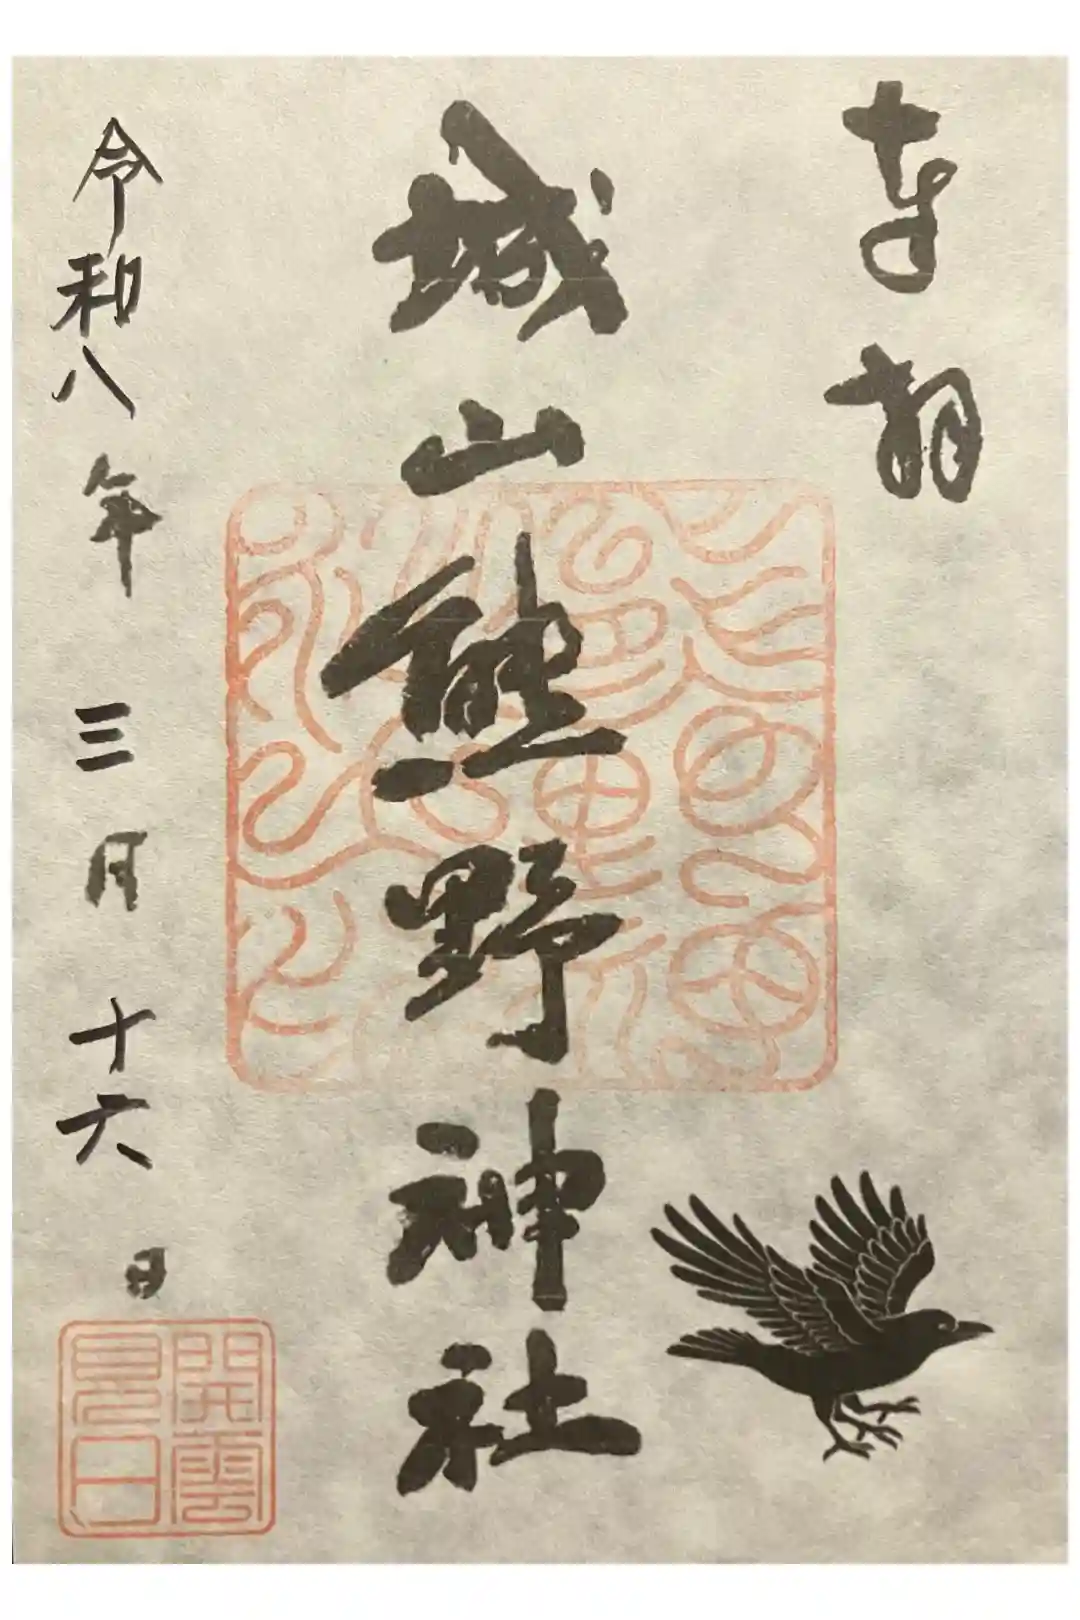 奉拝
城山熊野神社
令和八年 三月 十六日
開雲
見日